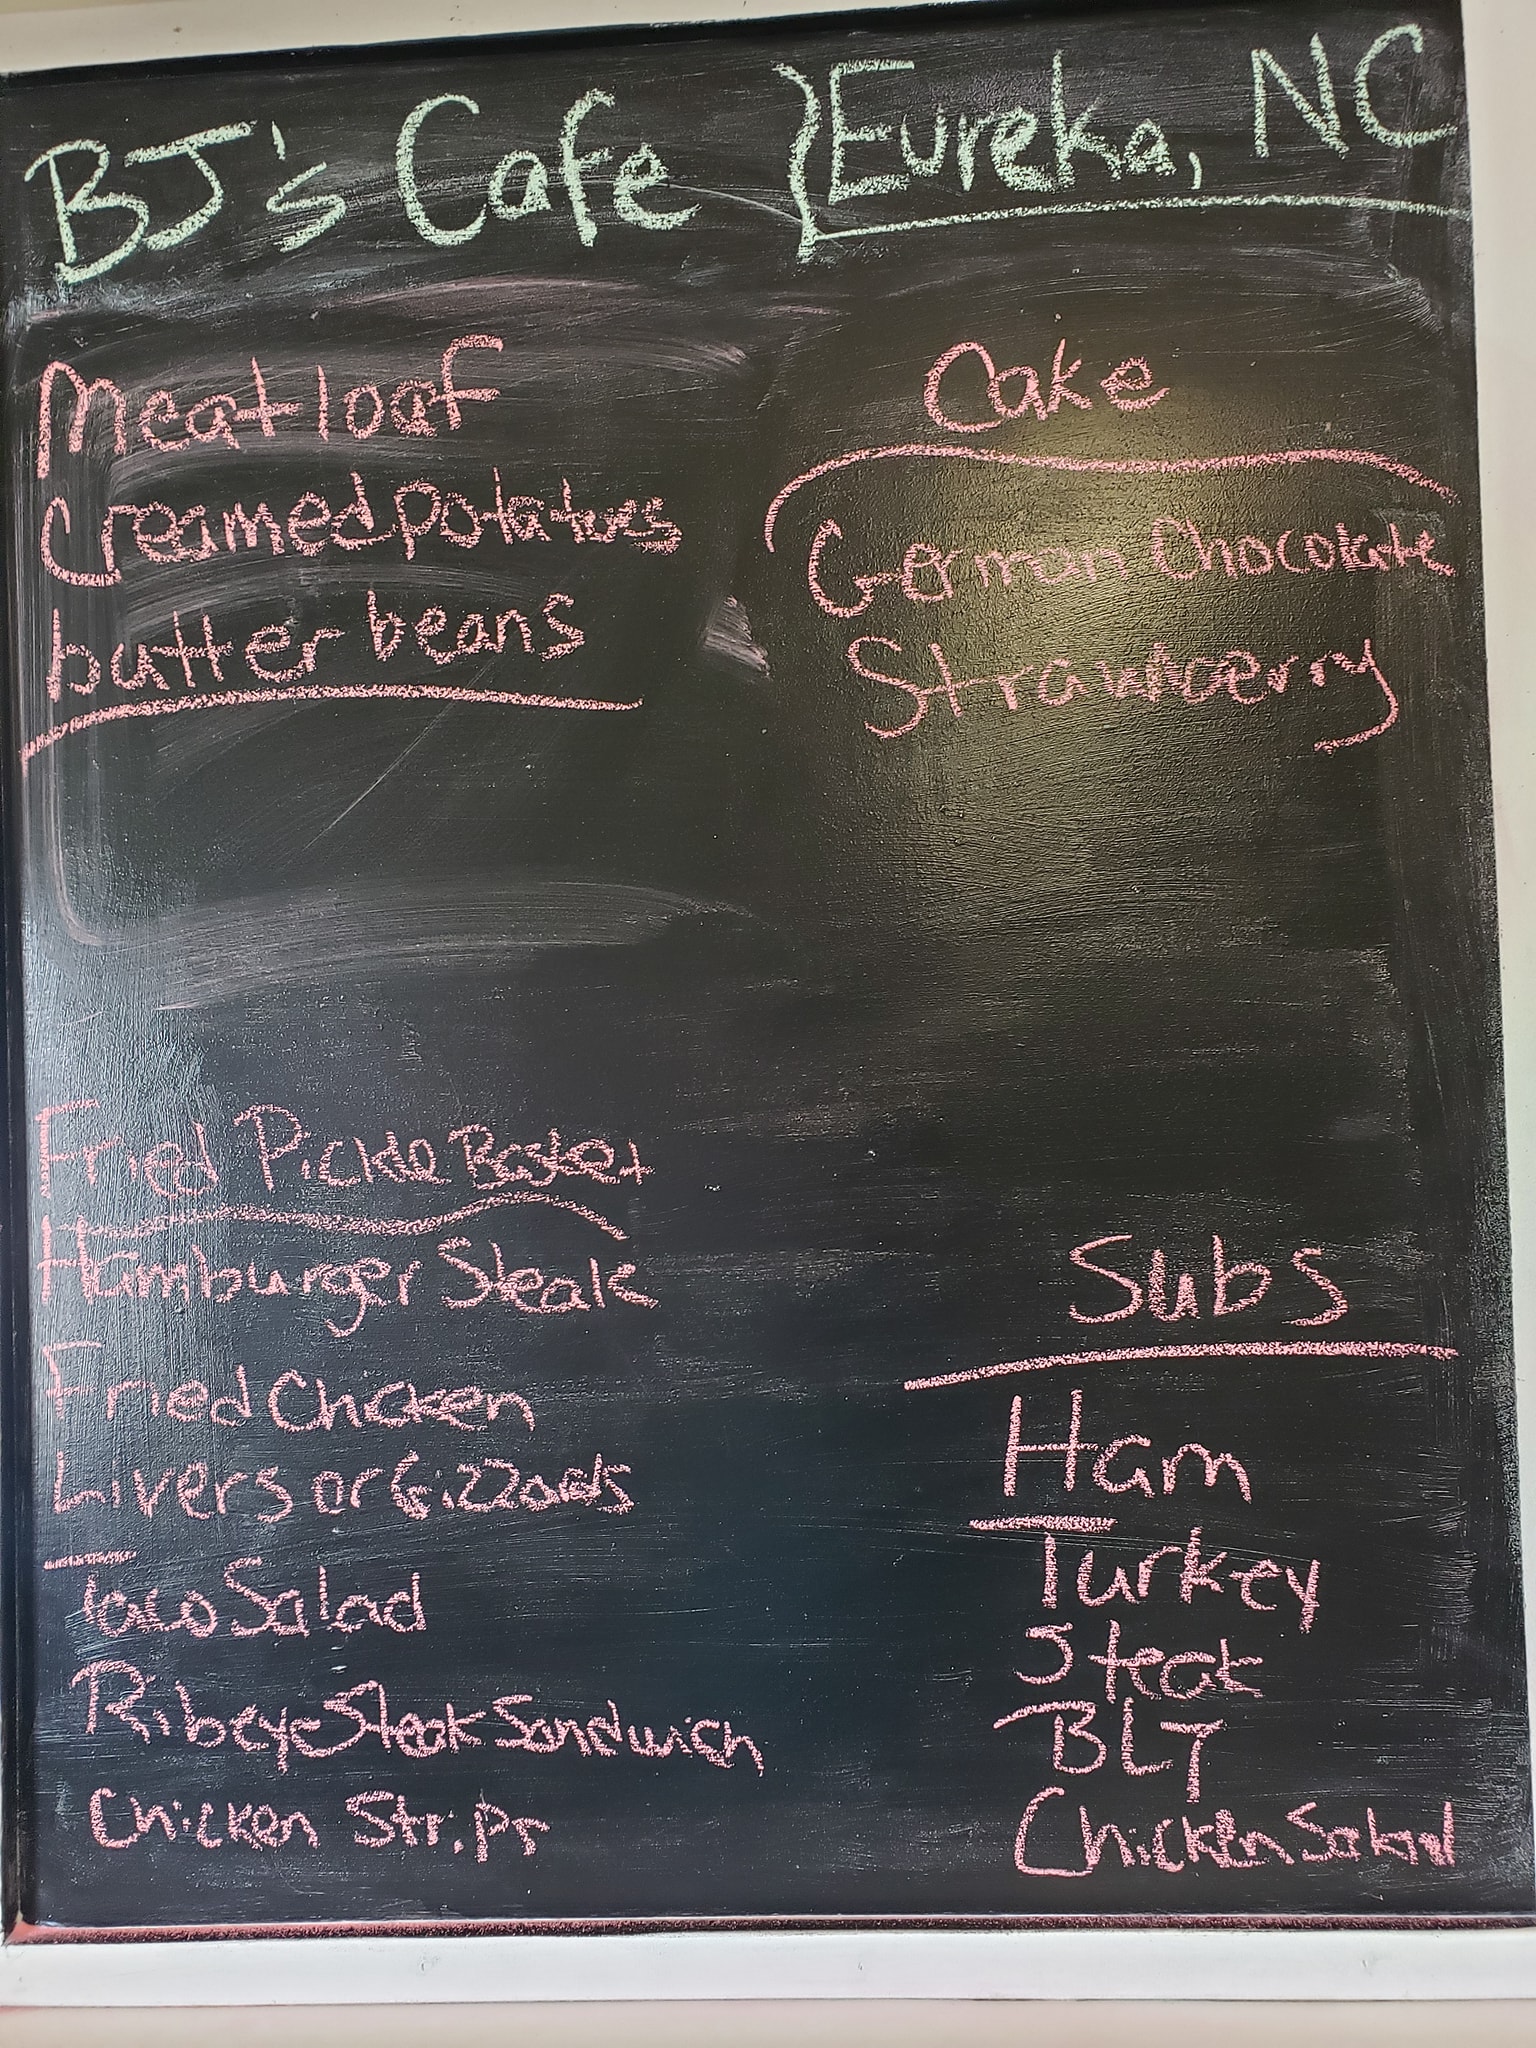 BJ's Cafe Eureka, NC
Meatloaf
Creamed potatoes
butter beans
Cake
German Chocolate
Strawberry
Fried Pickle Basket
Hamburger Steak
Fried Chicken
Livers or Gizzards
Taco Salad
Ribeye Steak Sandwich
Chicken Strips
Subs
Ham
Turkey
Steak
BLT
Chicken Salad